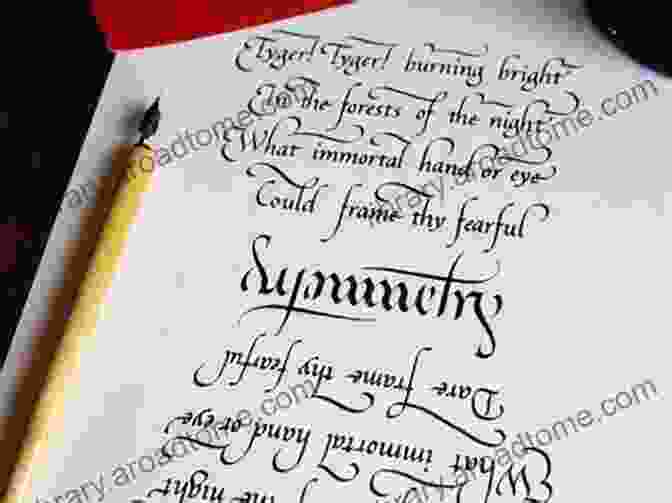 Tyger! Tyger! burning bright
In the forests of the night
What immortal hand or eye
Could frame thy fearful
symmetry
Dare frame thy fearful
What immortal hand or eye
the night
library.aroadtome.com
library.aroadtome.com
library.aroadtome.com
library.aroadtome.com